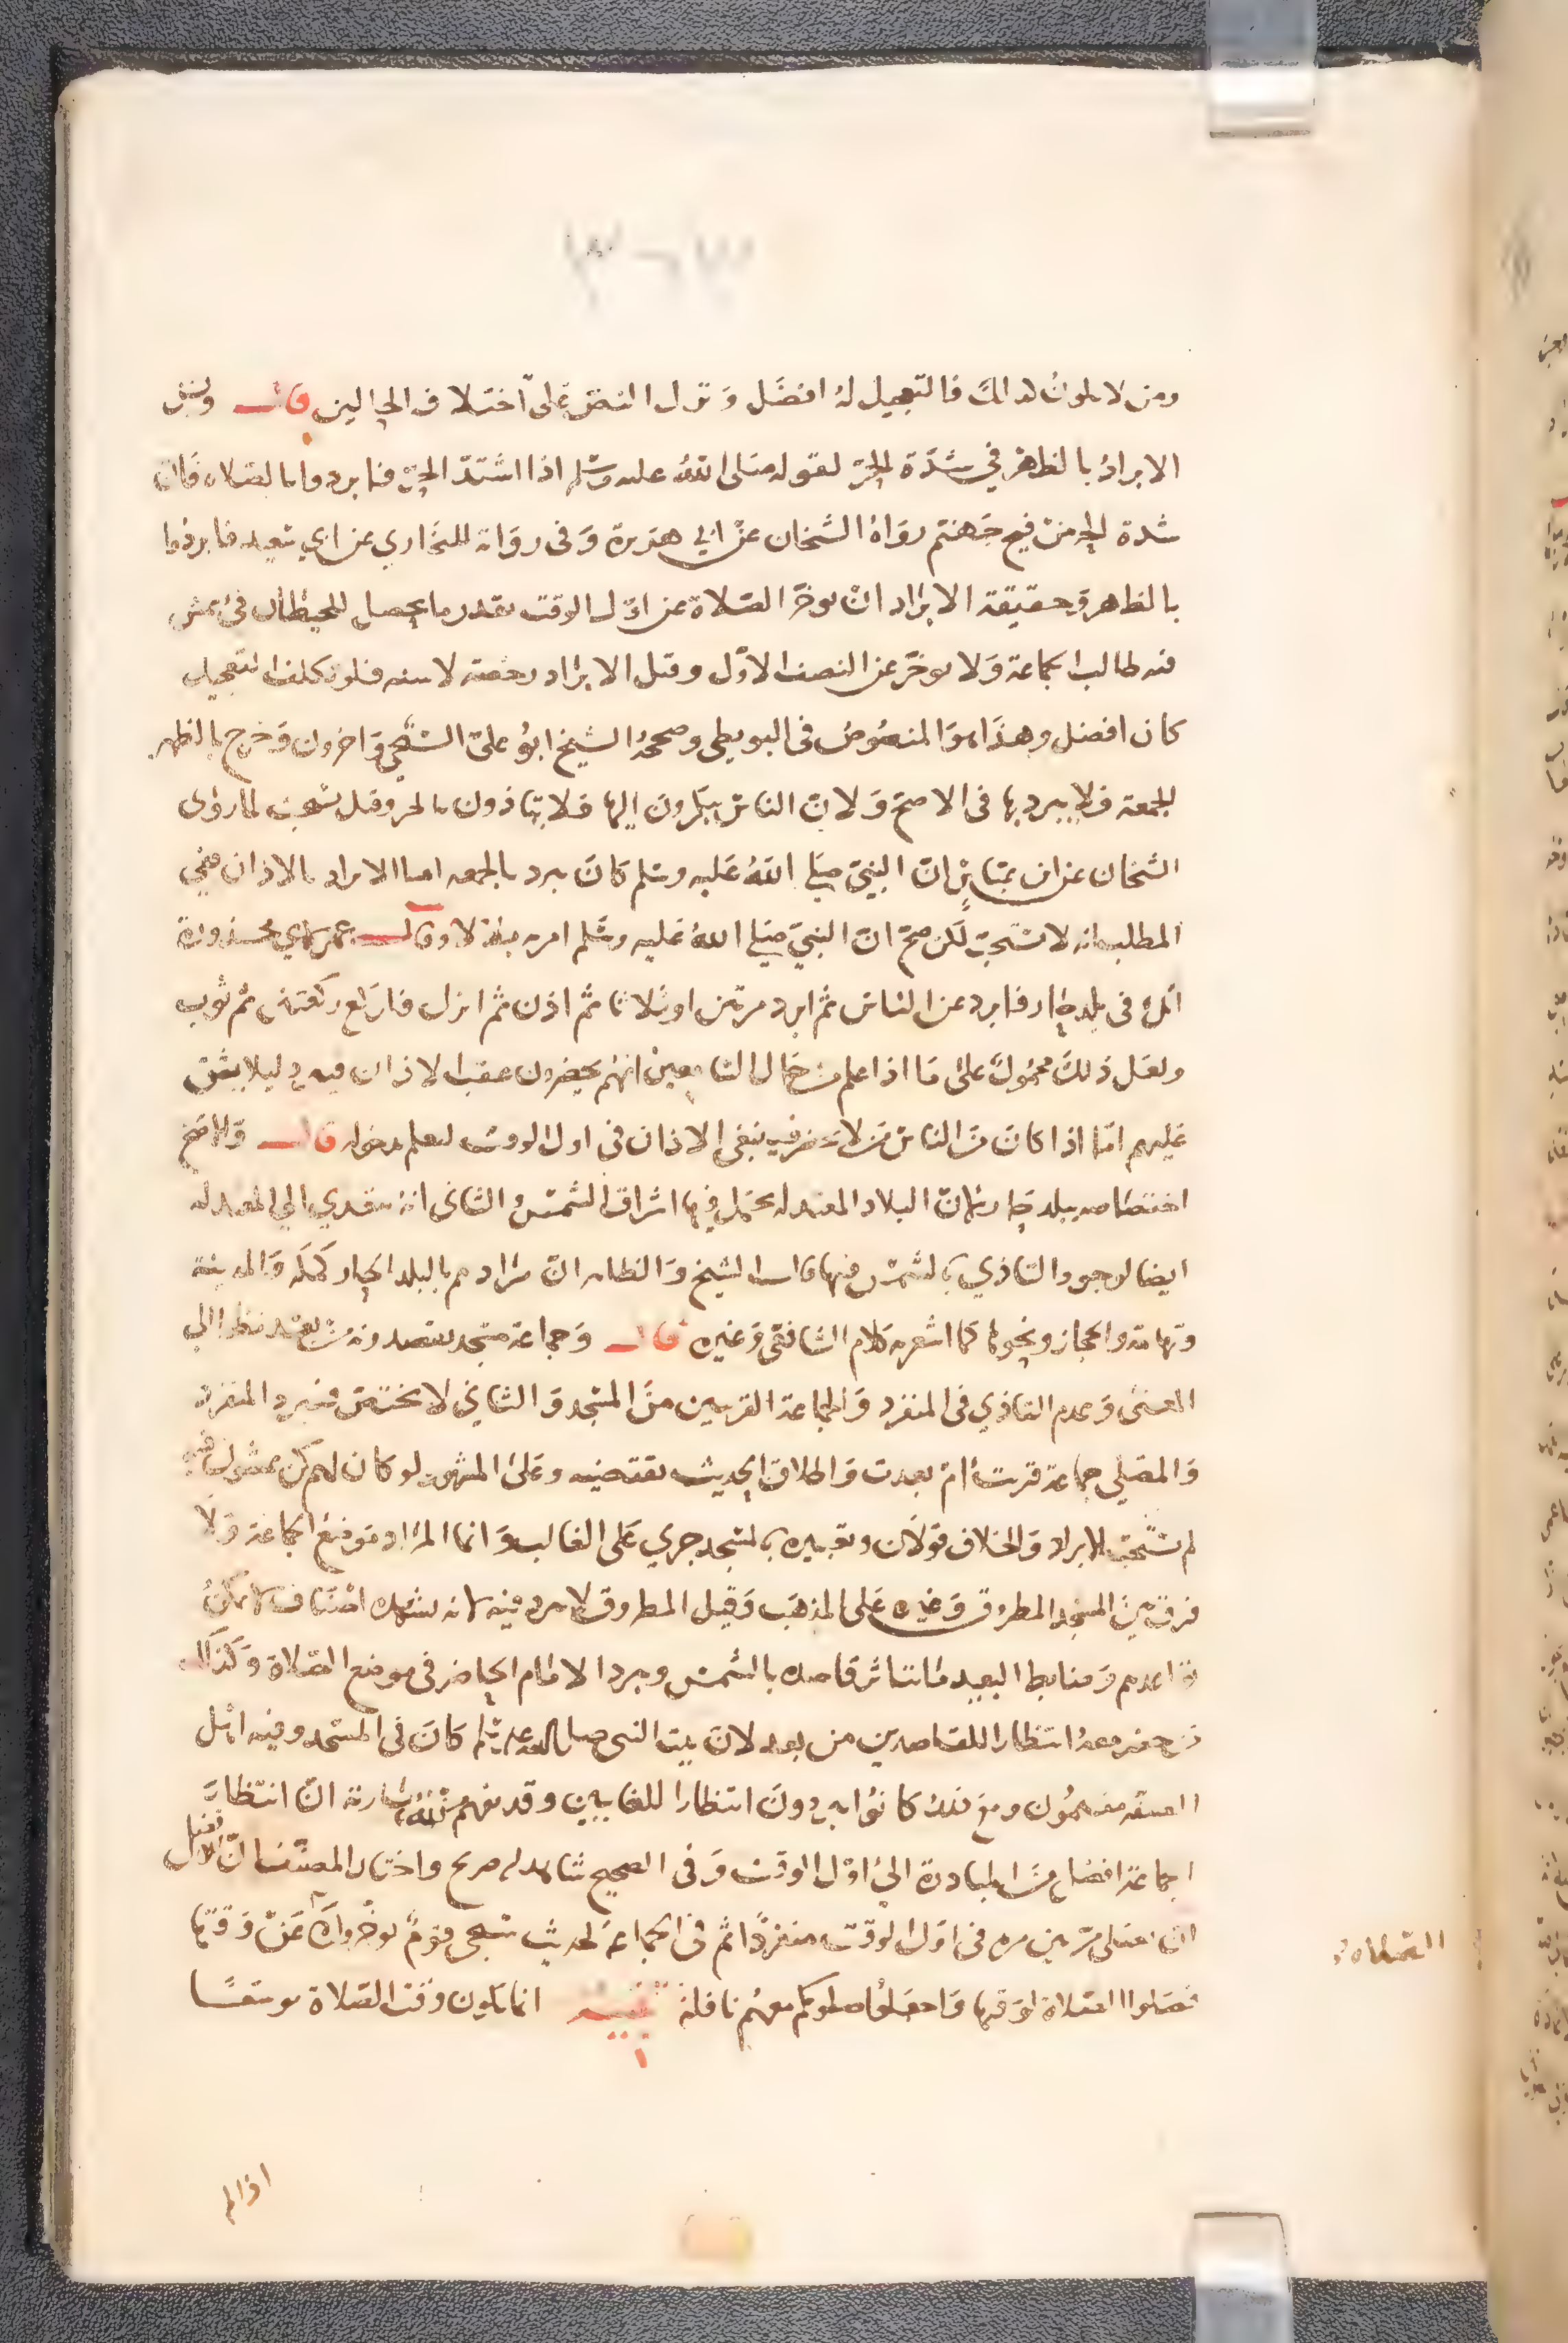 ومن لا يكون كذلك فالتعجيل له افضل وتنزل النص على اختلاف الحالين قال ويسن
الابراد بالظهر في شدة الحر لقوله صلى الله عليه وسلم اذا اشتد الحر فابردوا بالصلاه فان
شدة الحر من فيح جهنم رواه الشيخان عن ابي هريرة وفى رواية للبخاري عن ابي سعيد فابردوا
بالظهر وحقيقة الابراد ان يوخر الصلاة عن اول الوقت بقدر ما يحصل للحيطان فئ يمشى
فيه طالب الجماعة ولا يوخر عن النصف الاول وقيل الابراد رخصة لا سنه فلو تكلف التعجيل
كان افضل وهذا هو المنصوص فى البويطي وصححه الشيخ ابو على السنجي واخرون وخرج بالظهر
الجمعة فلا يبرد بها فى الاصح ولان الناس يبكرون اليها فلا يتاذون بالحر وقيل تستحب لما روى
الشيخان عن انس ان النبي صلى الله عليه وسلم كان يبرد بالجمعه اما الابراد بالاذان ففي
المطلب انه لا يستحب لكن صح ان النبي صلى الله عليه وسلم امر به بلالا وقال عمر لابي محذورة
انك فى بلد حار فابرد عن الناس ثم ابرد مرتين او ثلاثا ثم اذن ثم انزل فاركع ركعتين ثم ثوب
ولعل ذلك محمول على ما اذا علم من حال السامعين انهم يحضرون عقب الاذان فيبرد ليلا يشق
عليهم اما اذا كان من الناس من لا يحضر فينبغى الاذان فى اول الوقت ليعلم دخوله قال والاصح
اختصاصه ببلد حار لان البلاد المعتدله يحتمل فيها اشراق الشمس والثانى انه يتعدي الي المعتدله
ايضا لوجود التاذي بالشمس فيها قال الشيخ والظاهر ان مرادهم بالبلد الحار كمكه والمدينة
وتهامة والحجاز ونحوها كما اشعر به كلام الشافعي وغيره قال وجماعة مسجد يقصدونه من بعد نظرا الي
المعنى وعدم التاذي فى المنفرد والجماعة القريبين من المسجد والثاني لا يختص فيبرد المنفرد
والمصلى جماعة قربت ام بعدت واطلاق الحديث يقتضيه وعلى المشهور لو كان لهم كن يمشون فيه
لم يستحب الابراد والخلاف قولان وتعبيره بالمسجد جري على الغالب وانما المراد موضع الجماعة ولا
فرق بين المسجد المطروق وغيره على المذهب وقيل المطروق لا يبرد فيه لانه يشهده اصناف لا يمكن
تواعدهم وضابط البعيد ما يتاثر قاصده بالشمس ويبرد الامام الحاضر فى موضع الصلاة وكذلك
من حضر معه انتظارا للقاصدين من بعد لان بيت النبى صلى الله عليه وسلم كان فى المسجد وفيه اهل
الصفه مقيمون ومع ذلك كانوا يبردون انتظارا للغايبين وقد يفهم من عبارته ان انتظار
الجماعة افضل من المبادرة الى اول الوقت وفى الصحيح شاهد له صريح واختار المصنف ان الافضل
ان يصلى مرتين مره فى اول الوقت منفردا ثم فى الجماعة لحديث سيجى قوم يوخرون عن وقتها
الصلاه
فصلوا الصلاة لوقتها واجعلوا صلوتكم معهم نافلة تنبيه انما يكون وقت الصلاة موسعا
اذا لم